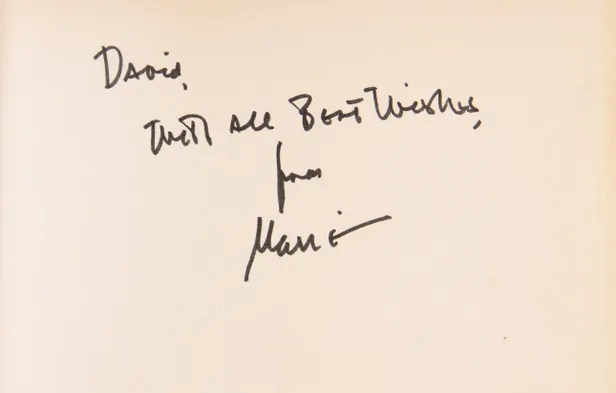 David,
With all Best Wishes,
from